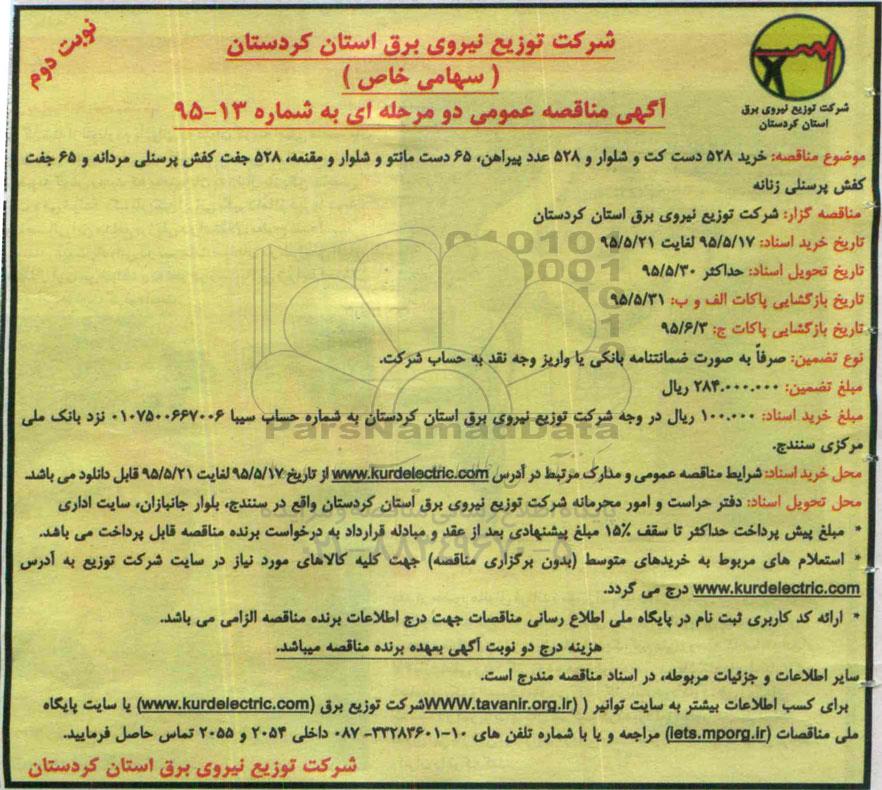 نوبت دوم
شرکت توزیع نیروی برق استان کردستان
( سهامی خاص )
آگهی مناقصه عمومی دو مرحله ای به شماره ۱۳-۹۵
شرکت توزیع نیروی برق
استان کردستان
موضوع مناقصه: خرید ۵۲۸ دست کت و شلوار و ۵۲۸ عدد پیراهن، ۶۵ دست مانتو و شلوار و مقنعه، ۵۲۸ جفت کفش پرسنلی مردانه و ۶۵ جفت
کفش پرسنلی زنانه
مناقصه گزار: شرکت توزیع نیروی برق استان کردستان
تاریخ خرید اسناد: ۹۵/۵/۱۷ لغایت ۹۵/۵/۲۱
تاریخ تحویل اسناد: حداکثر ۹۵/۵/۳۰
تاریخ بازگشایی پاکات الف و ب: ۹۵/۵/۳۱
تاریخ بازگشایی پاکات ج: ۹۵/۶/۳
نوع تضمین: صرفاً به صورت ضمانتنامه بانکی یا واریز وجه نقد به حساب شرکت.
مبلغ تضمین: ۲۸۴.۰۰۰.۰۰۰ ریال
مبلغ خرید اسناد: ۱۰۰.۰۰۰ ریال در وجه شرکت توزیع نیروی برق استان کردستان به شماره حساب سیبا ۰۱۰۷۵۰۰۶۶۷۰۰۶ نزد بانک ملی
مرکزی سنندج.
محل خرید اسناد: شرایط مناقصه عمومی و مدارک مرتبط در آدرس www.kurdelectric.com از تاریخ ۹۵/۵/۱۷ لغایت ۹۵/۵/۲۱ قابل دانلود می باشد.
محل تحویل اسناد: دفتر حراست و امور محرمانه شرکت توزیع نیروی برق استان کردستان واقع در سنندج، بلوار جانبازان، سایت اداری
* مبلغ پیش پرداخت حداکثر تا سقف ۱۵٪ مبلغ پیشنهادی بعد از عقد و مبادله قرارداد به درخواست برنده مناقصه قابل پرداخت می باشد.
* استعلام های مربوط به خریدهای متوسط (بدون برگزاری مناقصه) جهت کلیه کالاهای مورد نیاز در سایت شرکت توزیع به آدرس
www.kurdelectric.com درج می گردد.
* ارائه کد کاربری ثبت نام در پایگاه ملی اطلاع رسانی مناقصات جهت درج اطلاعات برنده مناقصه الزامی می باشد.
هزینه درج دو نوبت آگهی بعهده برنده مناقصه میباشد.
سایر اطلاعات و جزئیات مربوطه، در اسناد مناقصه مندرج است.
برای کسب اطلاعات بیشتر به سایت توانیر ( (WWW.tavanir.org.ir شرکت توزیع برق (www.kurdelectric.com) یا سایت پایگاه
ملی مناقصات (iets.mporg.ir) مراجعه و یا با شماره تلفن های ۱۰-۳۳۲۸۳۶۰۱- ۰۸۷ داخلی ۲۰۵۴ و ۲۰۵۵ تماس حاصل فرمایید.
شرکت توزیع نیروی برق استان کردستان
ParsNamadData